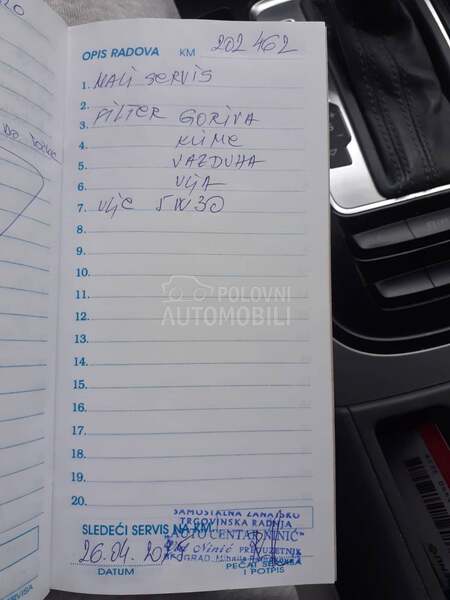 OPIS RADOVA KM 202 462
1. MALI SERVIS
2.
3. FILTER GORIVA
4. KLIME
5. VAZDUHA
6. ULJA
7. ULJE 5W30
8.
9.
10.
11.
12.
13.
14.
15.
16.
17.
18.
19.
20.
POLOVNI
AUTOMOBILI
SAMOSTALNA ZANATSKO
TRGOVINSKA RADNJA
SLEDEĆI SERVIS NA KM
"AUTOCENTAR NINIĆ"
Ninić PREDUZETNIK
26.04.
DATUM
PEČAT SERVISA
I POTPIS